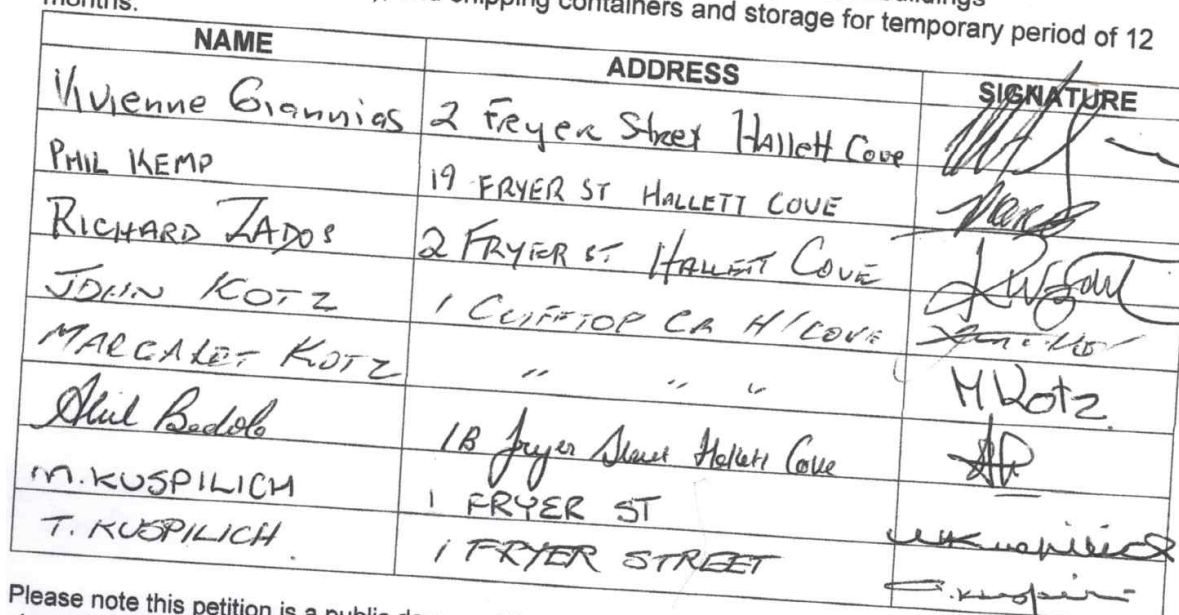 buildings
months. shipping containers and storage for temporary period of 12
NAME ADDRESS SIGNATURE
Vivienne Giannias 2 Fryer Street Hallett Cove
PHIL KEMP 19 FRYER ST HALLETT COVE
RICHARD ZADOS 2 FRYER ST HALLETT COVE
JOHN KOTZ 1 CLIFFTOP CR H/COVE
MARGARET KOTZ " " " M Kotz
1B Fryer Street Hallett Cove
M. KUSPILICH 1 FRYER ST
T. KUSPILICH. 1 FRYER STREET
Please note this petition is a public